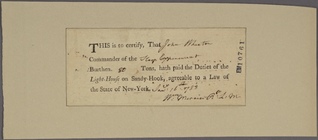 THIS is to certify, That John
Commander of the Sloop Experiment
Burthen, 80 Tons, hath paid the Duties of the
Light-House on Sandy-Hook, agreeable to a Law of
the State of New-York.